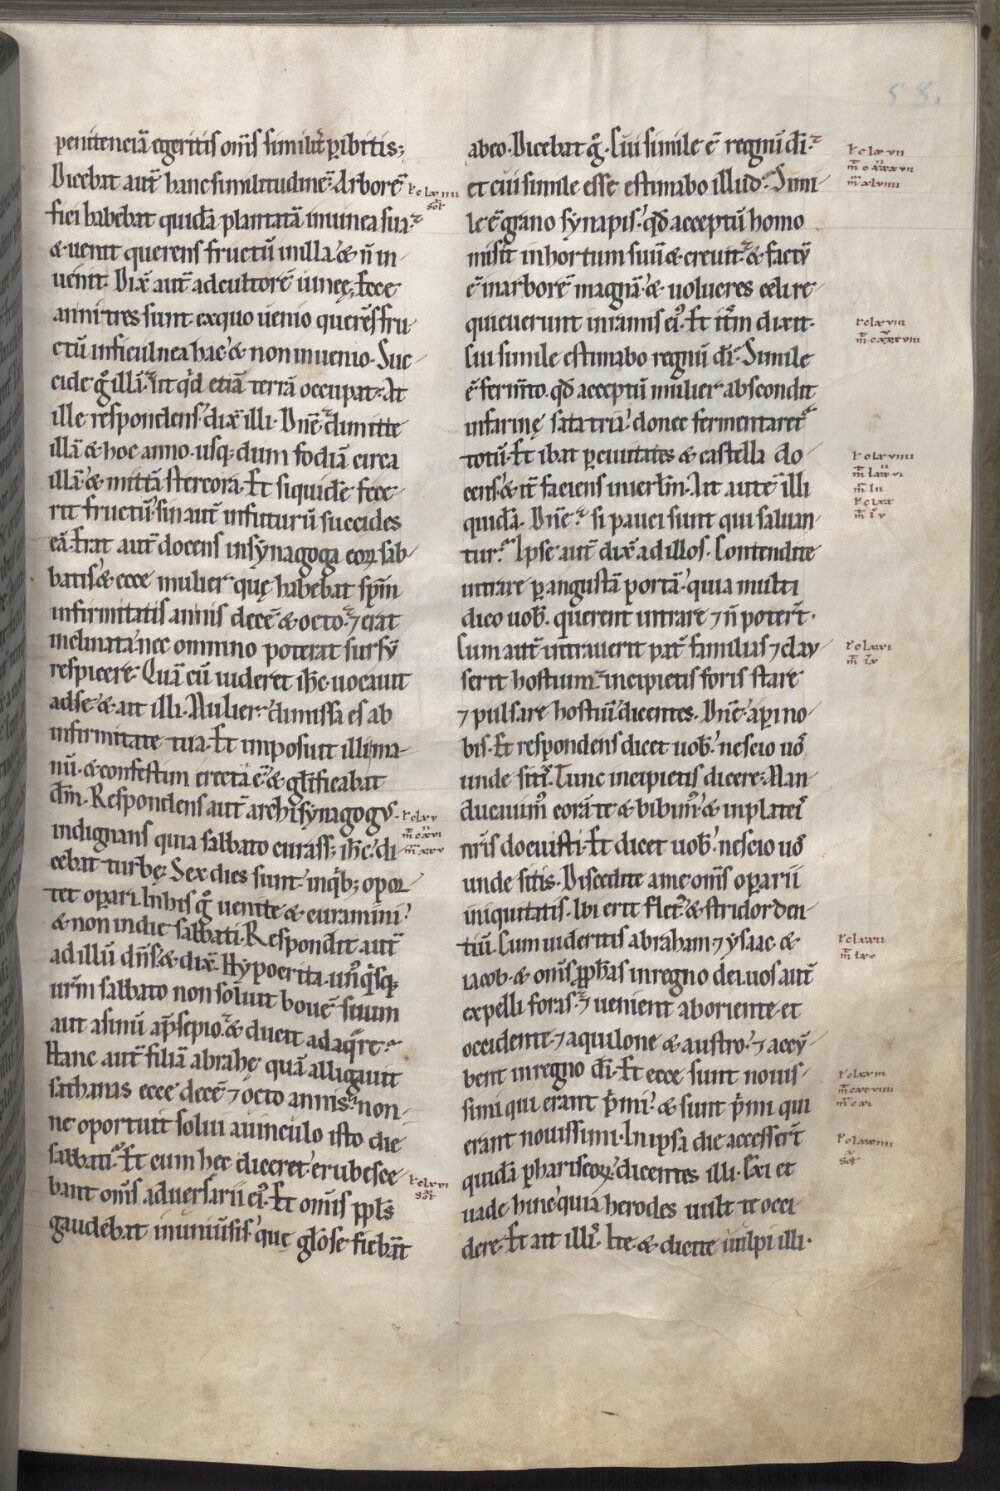 penitenciā egeritis om̄s similit̄ p̱ibitis;
Dicebat aut̄ hanc similitudinē. Arborē
fici habebat quidā plantatā in uinea sua.
& uenit querens fructū in illa. & n̄ in-
uenit. Dix̄ aut̄ ad cultorē uineę. Ecce
anni tres sunt ex quo uenio querēs fru-
ctū in ficulnea hac. & non inuenio. Suc-
cide g̊ illā. ut qͥd etiā terrā occupat. At
ille respondens. dix̄ illi. Dn̄e. dimitte
illā & hoc anno. usq; dum fodiā circa
illā. & mittā stercora. Et siquidē fece-
rit fructū. sin aut̄ in futurū succides
eā. Erat aut̄ docens in synagoga eoꝝ sab-
batis. & ecce mulier quę habebat sp̄m
infirmitatis annis decē & octo. ⁊ erat
inclinata. nec omnino poterat sursū
respicere. Quā cū uideret ih̄c. uocauit
ad se. & ait illi. Mulier. dimissa es ab
infirmitate tua. Et imposuit illi ma-
nū. & confestim erecta ē. & glīficabat
dm̄. Respondens aut̄ archisynagogus.
indignans quia sabbato curass; ih̄c. di-
cebat turbę. Sex dies sunt. inqͥb; opor-
tet op̱ari. In his g̊ uenite & curamini.
& non in die sabbati. Respondit aut̄
ad illū dn̄s. & dix̄. Hypocrita. un̾ qͥsq;
ur̄m sabbato non soluit bouē suum
aut asinū ap̄sepio. & ducit adaq̄re.
Hanc aut̄ filiā abrahę quā alligauit
sathanas ecce decē ⁊ octo annis. non-
ne oportuit solui a uinculo isto die
sabbati. Et cum hec diceret. erubesce-
bant om̄s aduersarii ei̾. Et om̄is ppl̄s
gaudebat in uniūsis. quę glōse fiebāt
abeo. Dicebat g̊. Cui simile ē regnū dī.
et cui simile esse estimabo illud. Simi-
le ē grano synapis. qđ acceptū homo
misit in hortum suū & creuit. & factū
ē in arborē magnā. & uolucres celi re-
quieuerunt in ramis ei̾. Et itm̄ dixit.
Cui simile estimabo regnū dī. Simile
ēferm̄to. qđ acceptū mulier abscondit
in farinę sata tria. donec fermentaret̄
totū. Et ibat p̱ ciuitates & castella do-
cens. & it̄ faciens in ierlm̄. Ait autē illi
quidā. Dn̄e. si pauci sunt qui saluan-
tur. Ipse aut̄ dix̄ ad illos. Contendite
intrare p̱ angustā portā. quia multi
dico uob̄. querent intrare ⁊ n̄ potert̄.
Cum aut̄ intrauerit pat̄ familias ⁊ clau-
serit hostium. incipietis foris stare
⁊ pulsare hostiū. dicentes. Dn̄e. ap̱i no-
bis. Et respondens dicet uob̄. nescio uō
unde sitī. Tunc incipietis dicere. Man-
ducauim̾ corā te & bibim̾. & in plateī
nr̄is docuisti. Et dicet uob̄. nescio uō
unde sitis. Discedite a me om̄s op̱arii
iniquitatis. Ibi erit flet̾ & stridor den-
tiū. Cum uideritis abraham ⁊ ysaac &
iacob. & om̄s pph̄as in regno dei. uos aut̄
expelli foras. ⁊ uenient ab oriente et
occidente. ⁊ aquilone & austro. ⁊ accū-
bent in regno dī. Et ecce sunt nouis-
simi qui erant pͥmi. & sunt pͥmi qui
erant nouissimi. In ipsa die accessert̄
quidā phariseoꝝ. dicentes illi. Exi et
uade hinc. quia herodes uult te occi-
dere. Et ait illī. Ite. & dicite uulpi illi.